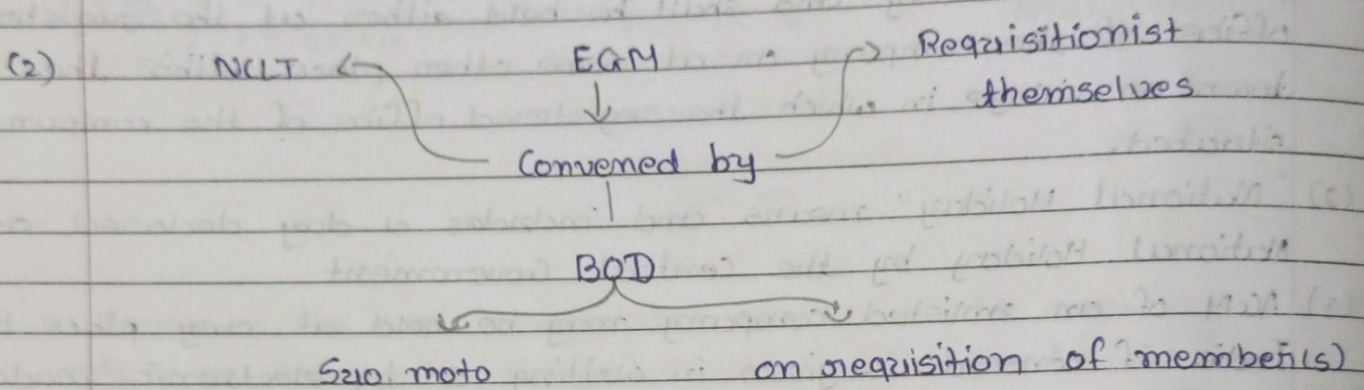 (2) NCLT EGM Requisitionist
themselves
Convened by
BOD
Suo moto on requisition of member(s)